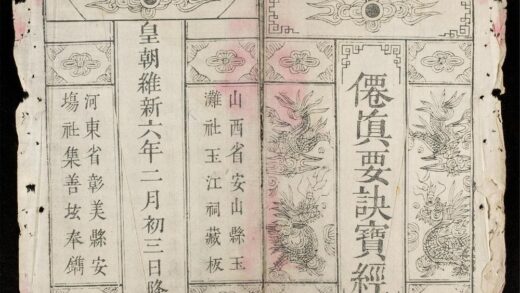 僊眞要訣寶經
山西省安山縣玉
灘社玉江祠藏板
皇朝維新六年二月初三日降
河東省彰美縣安
塲社集善坛奉鐫